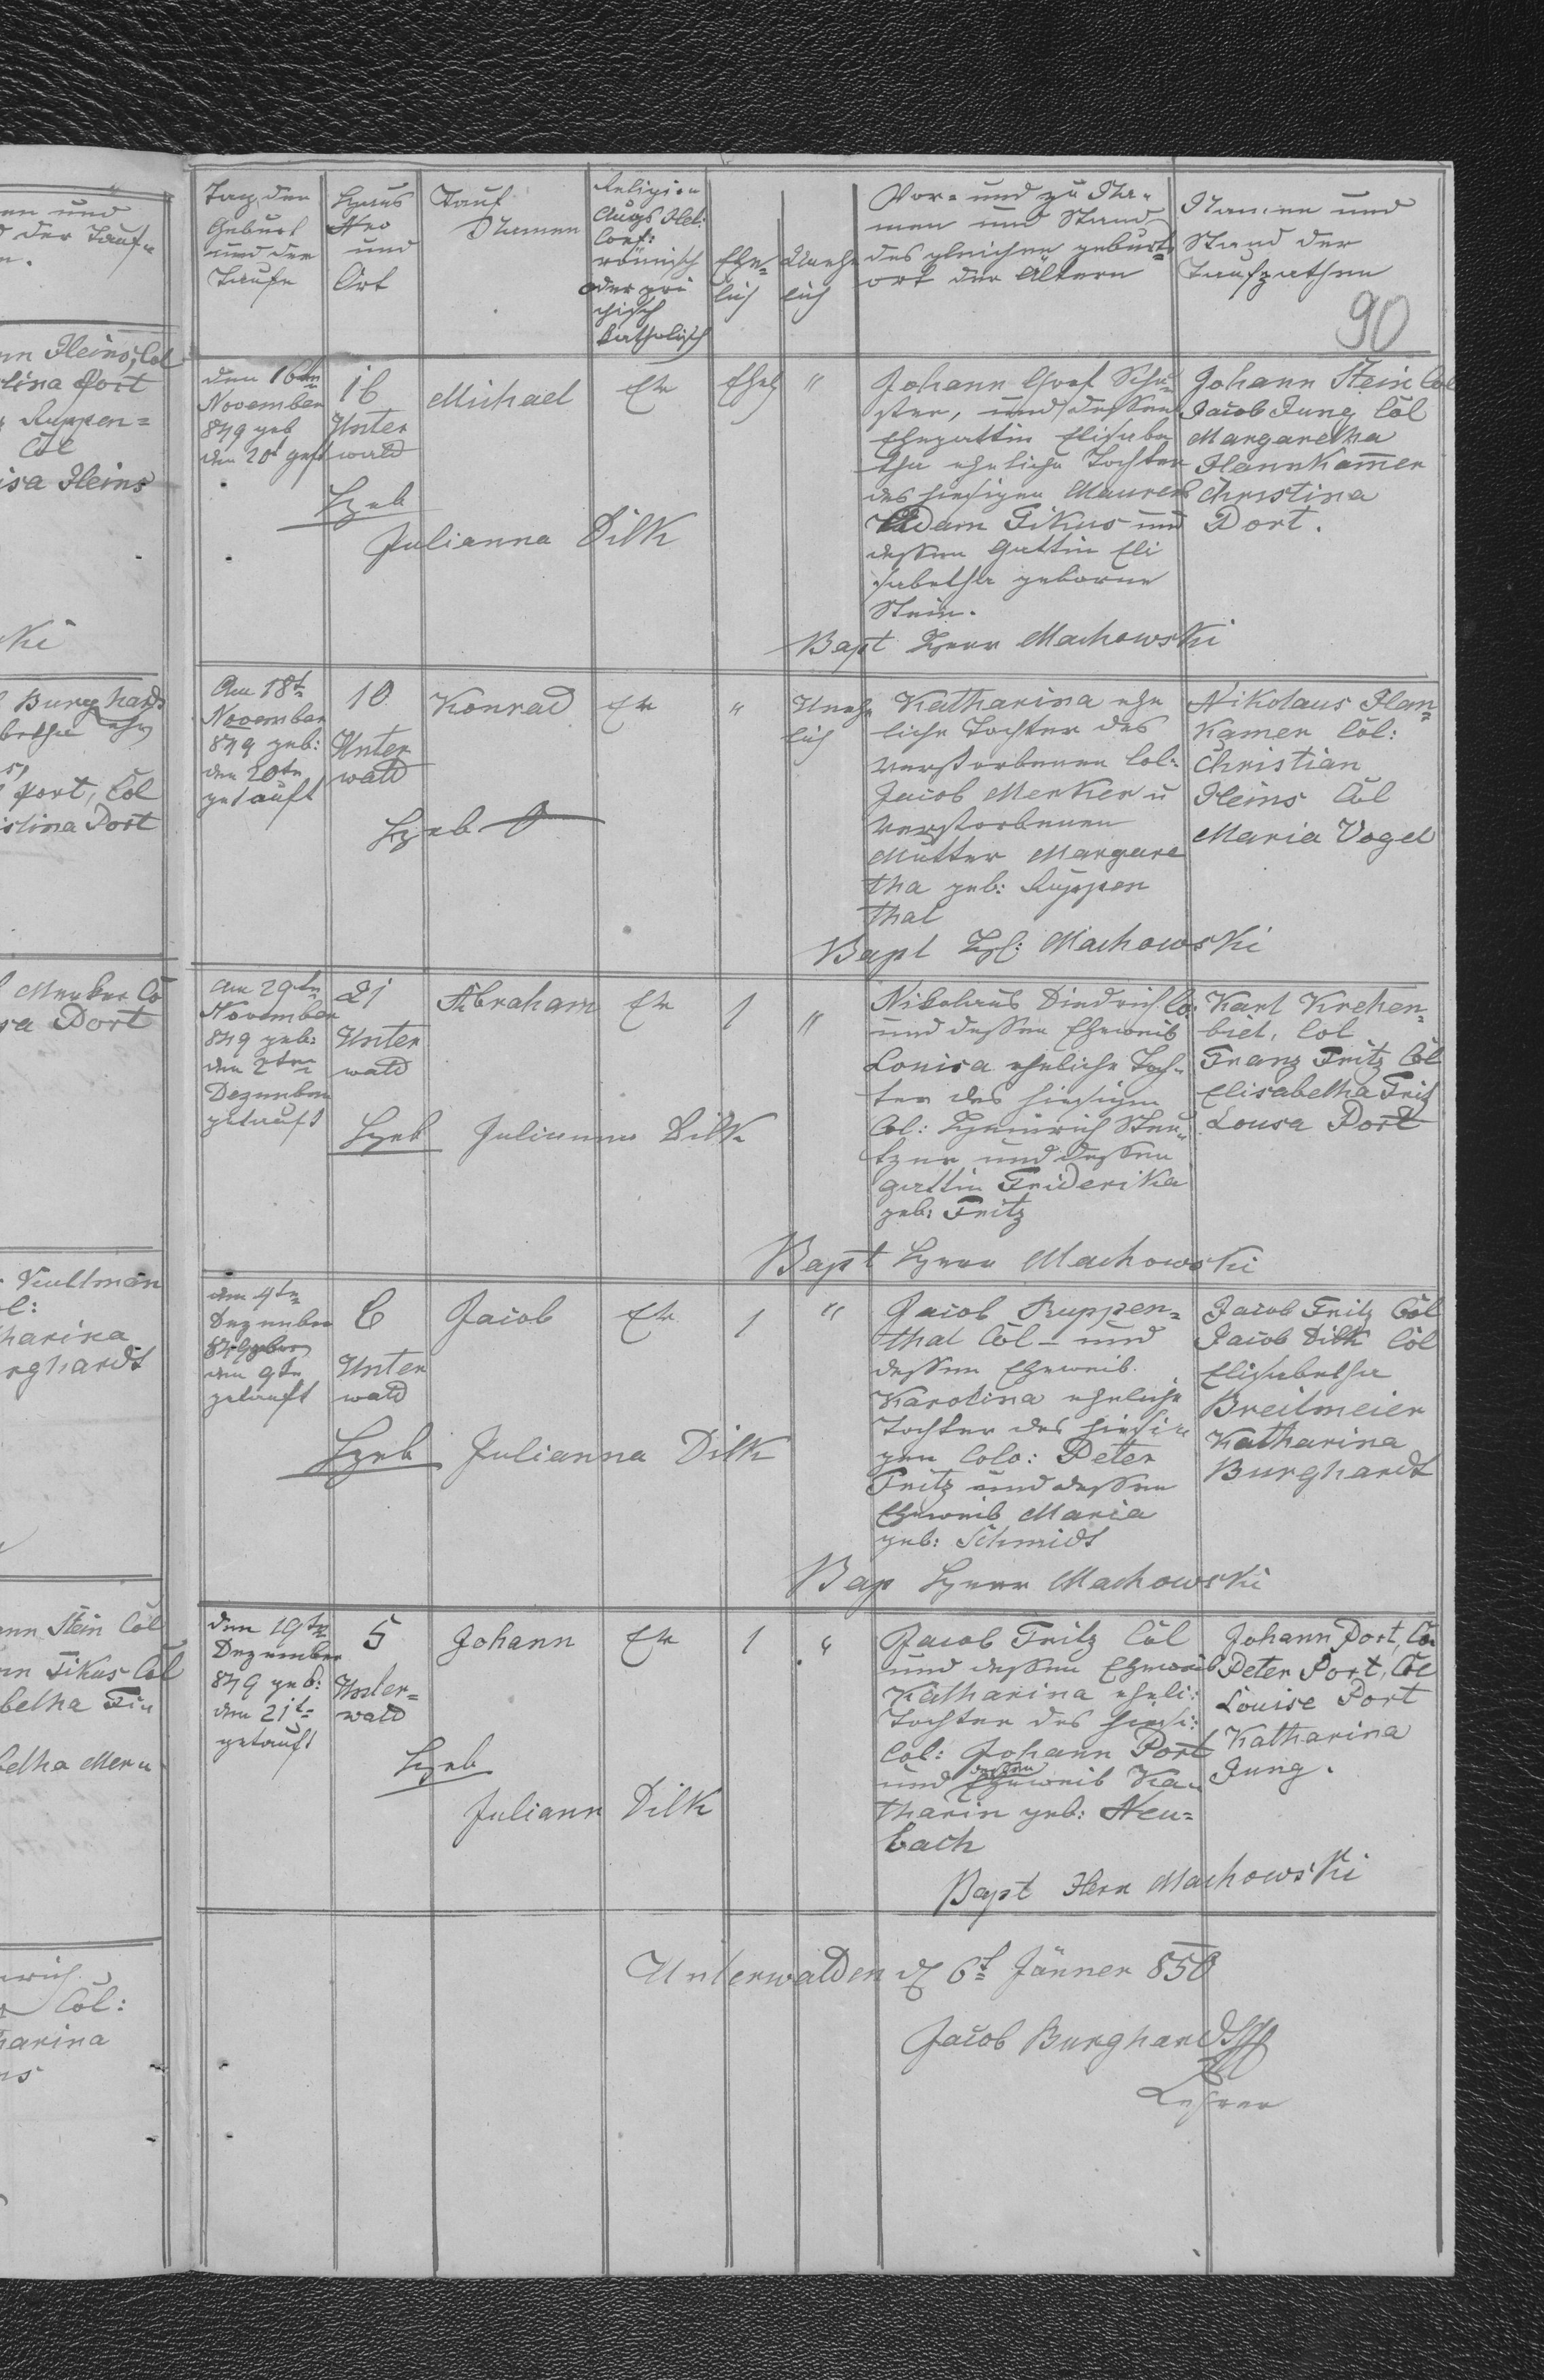 Tag der
Geburt
und der
Taufe
Haus
Nro
und
Ort
Tauf
Namen
Religion
Augs Hel:
Conf:
römisch
oder gri
chisch
Katholisch
Ehe-
lich
Unehe
lich
Vor- und zu Na-
men und Stand
desgleichen geburts
ort der Ältern
Namen und
Stand der
Taufpathen
90
den 16ten
November
849 geb
den 20t getft
16
Unter
wald
Michael
Ev
Ehel
"
Johann Graf Schu-
ster, und dessen
Ehegattin Elisabe
tha eheliche Tochter
des hiesigen Maurers
Adam Fikus und
dessen Gattin Eli
sabetha geborne
Stein.
Johann Stein Col
Jacob Jung Col
Margaretha
Hannkamer
Christina
Port.
Heb
Julianna Dilk
Bapt Herr Machowski
Am 18t
November
849 geb:
den 20te
getauft
10
Unter
wald
Konrad
Ev
"
Unehe
lich
Katharina ehe
liche Tochter des
verstorbenen Col:
Jacob Merker u
verstorbenen
Mutter Margare
tha geb: Ruppen
thal
Nikolaus Han-
kamer Col:
Christian
Heins Col
Maria Vogel
Heb
Bapt H: Machowski
Am 29te
November
849 geb:
den 2ten
Dezember
getauft
21
Unter
wald
Abraham
Ev
1
"
Nikolaus Diedrich Co:
und dessen Eheweib
Louisa eheliche Toch-
ter des hiesigen
Col: Heinrich
und dessen
gattin Friderika
geb: Fritz
Karl Krehen-
biel, Col
Franz Fritz Col
Elisabetha Fritz
Lousa Port
Heb Julianna Dilk
Bapt Herr Machowski
den 4te
Dezember
849 geboren
den 9te
getauft
6
Unter
wald
Jacob
Ev
1
"
Jacob Ruppen-
thal Col - und
dessen Eheweib
Karolina eheliche
Tochter des hiesi-
gen Colo: Peter
Fritz und dessen
Eheweib Maria
geb: Schmidt
Jacob Fritz Col
Jacob Dilk Col
Elisabetha
Breitmeier
Katharina
Burghardt
Heb Julianna Dilk
Bap Herr Machowski
den 19te
Dezember
849 geb:
den 21t
getauft
5
Unter-
wald
Johann
Ev
1
"
Jacob Fritz Col
und dessen Eheweib
Katharina eheli:
Tochter des hiesi:
Col: Johann Port
und dessen Eheweib Ka-
tharin geb: Neu-
bach
Johann Port, Co
Peter Port, Col
Louise Port
Katharina
Jung.
Heb
Juliann Dilk
Bapt Herr Machowski
Unterwalden d 6t Jänner 850
Jacob Burghardt
Lehrer